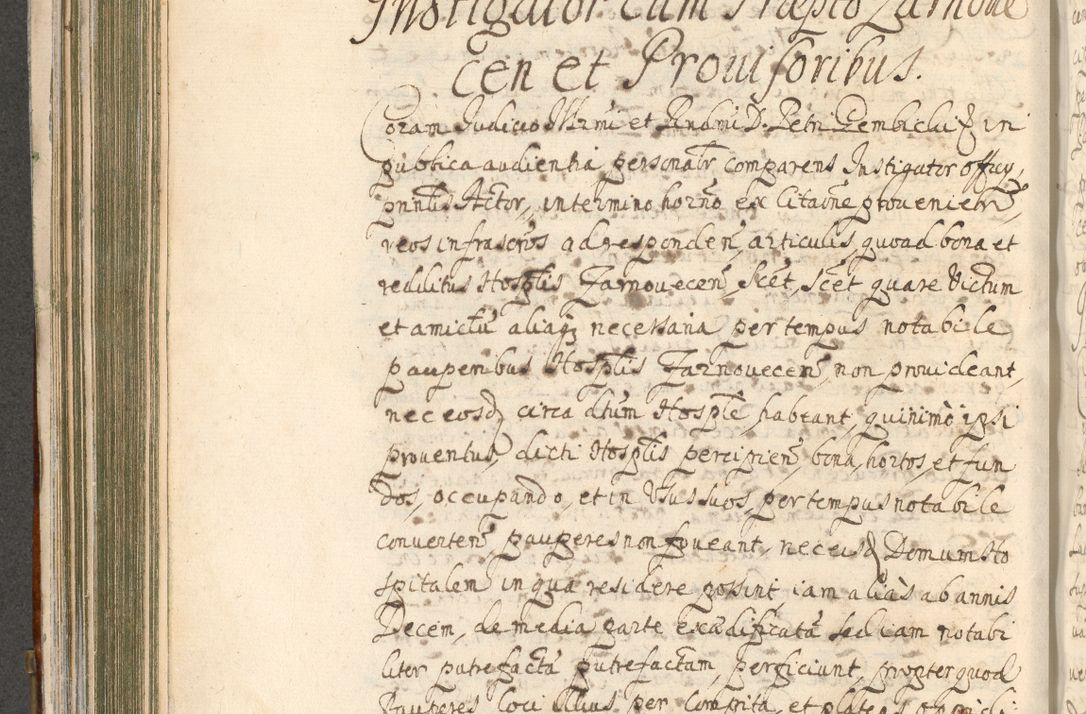 Instigator cum Praepto Żarnove
cen et Prouisoribus.
Coram Judicio Illrmi et Rndmi D. Petri Gembicki in
publica audientia personalr comparens Instigator officy,
pnntis Actor, in termino horno ex Citaone prouenient,
reos infrascros ad responden, articulis, quoad bona et
redditus Hosplis Zarnouecen, Scet, Scet quare Victum
et amictu aliaq necessaria per tempus notabile
pauperibus Hosplis Zarnouecen, non prouideant,
nec eosd circa dtum Hosple habeant, quinimò ipsi
prouentus, dicti Hosplis percipien, bona, hortos, et fun
dos, occupando, et in Vsus suos, per tempus notabile
conuerten, pauperes non foueant, nec eisd Domum Ho
spitalem in qua residere possint iam aliàs ab annis
Decem, de media parte exædificata sed iam notabi
liter putrefacta putrefactam, perficiunt, propter quod
Pauperes loci illius per Compita, et plateas